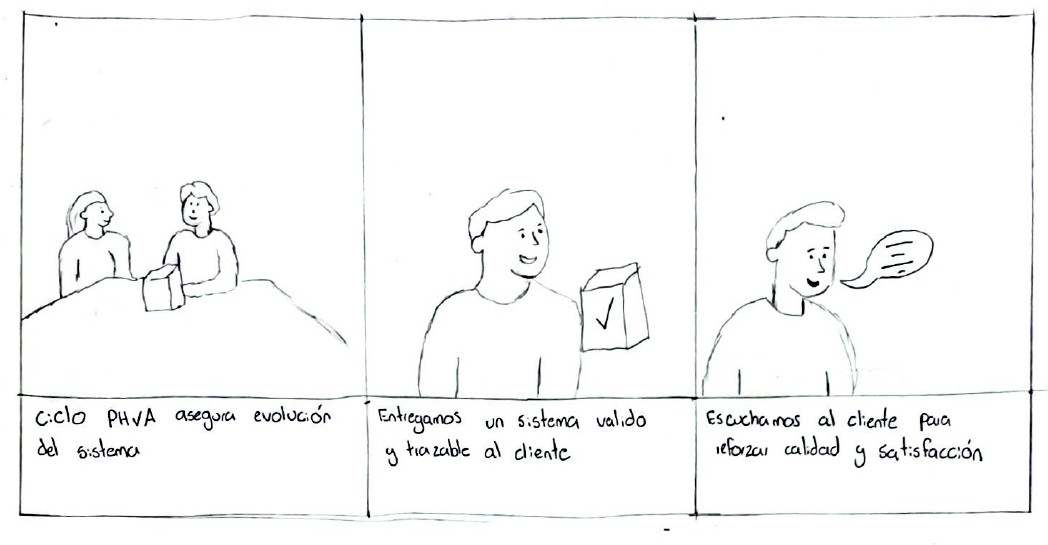 Ciclo PHVA asegura evolución
del sistema
Entregamos un sistema valido
y trazable al cliente
Escuchamos al cliente para
reforzar calidad y satisfacción